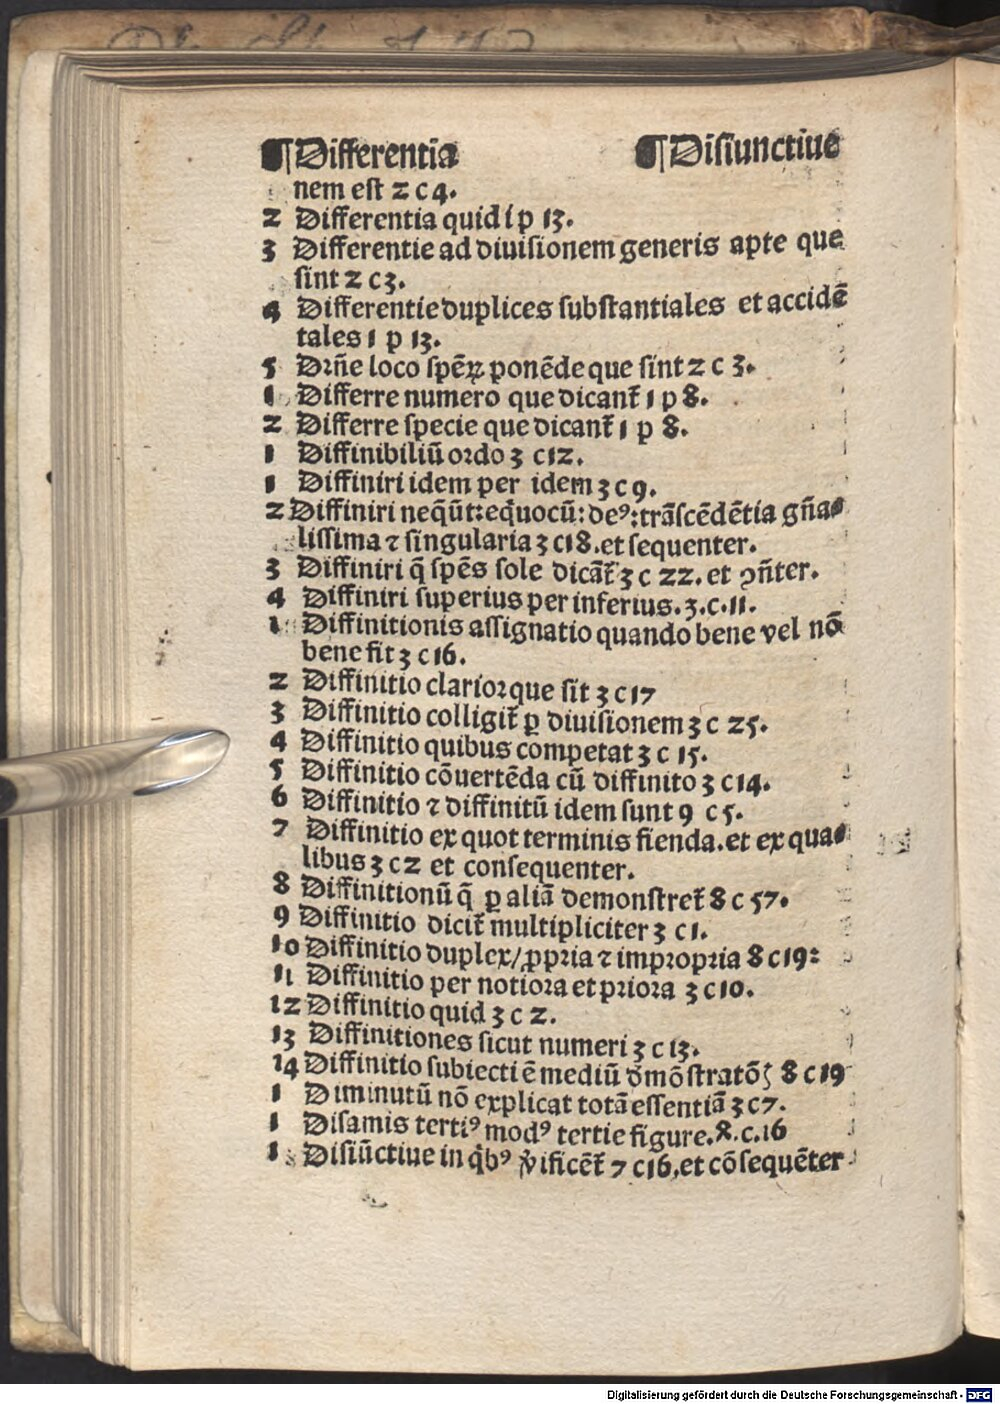 ¶Differentia ¶Disiunctiue
nem est 2 c 4.
2 Differentia quid i p 13.
3 Differentie ad diuisionem generis apte que
sint 2 c 3.
4 Differentie duplices substantiales et accidē
tales 1 p 13.
5 Drn̄e loco spēꝝ ponēde que sint 2 c 3.
1 Differre numero que dicant̄ 1 p 8.
2 Differre specie que dicant̄ 1 p 8.
1 Diffinibiliū ordo 3 c12.
1 Diffiniri idem per idem 3 c 9.
2 Diffiniri neq̄ūt: eq̄uocū: deꝰ: trāscēdētia gn̄a⸗
lissima ⁊ singularia 3 c18. et sequenter.
3 Diffiniri q̄ spēs sole dicāt̄ 3 c 22. et ꝯn̄ter.
4 Diffiniri superius per inferius. 3. c. 11.
1 Diffinitionis assignatio quando bene vel nō
bene fit 3 c16.
2 Diffinitio clarior que sit 3 c17
3 Diffinitio colligit̄ ꝑ diuisionem 3 c 25.
4 Diffinitio quibus competat 3 c 15.
5 Diffinitio cōuertēda cū diffinito 3 c14.
6 Diffinitio ⁊ diffinitū idem sunt 9 c 5.
7 Diffinitio ex quot terminis fienda. et ex qua⸗
libus 3 c2 et consequenter.
8 Diffinitionū q̄ ꝑ aliā demonstret̄ 8 c 57.
9 Diffinitio dicit̄ multipliciter 3 c1.
10 Diffinitio duplex/ ꝓpria ⁊ impropria 8 c19:
11 Diffinitio per notiora et priora 3 c10.
12 Diffinitio quid 3 c 2.
13 Diffinitiones sicut numeri 3 c 13.
14 Diffinitio subiecti ē mediū d̄mōstratōꝭ 8 c19
1 Diminutū nō explicat totā essentiā 3 c7.
1 Disamis tertiꝰ modꝰ tertie figure. 8. c. 16
1 Disiūctiue in q̄bꝰ v̄ificēt̄ 7 c16, et cōsequēter
Digitalisierung gefördert durch die Deutsche Forschungsgemeinschaft - DFG